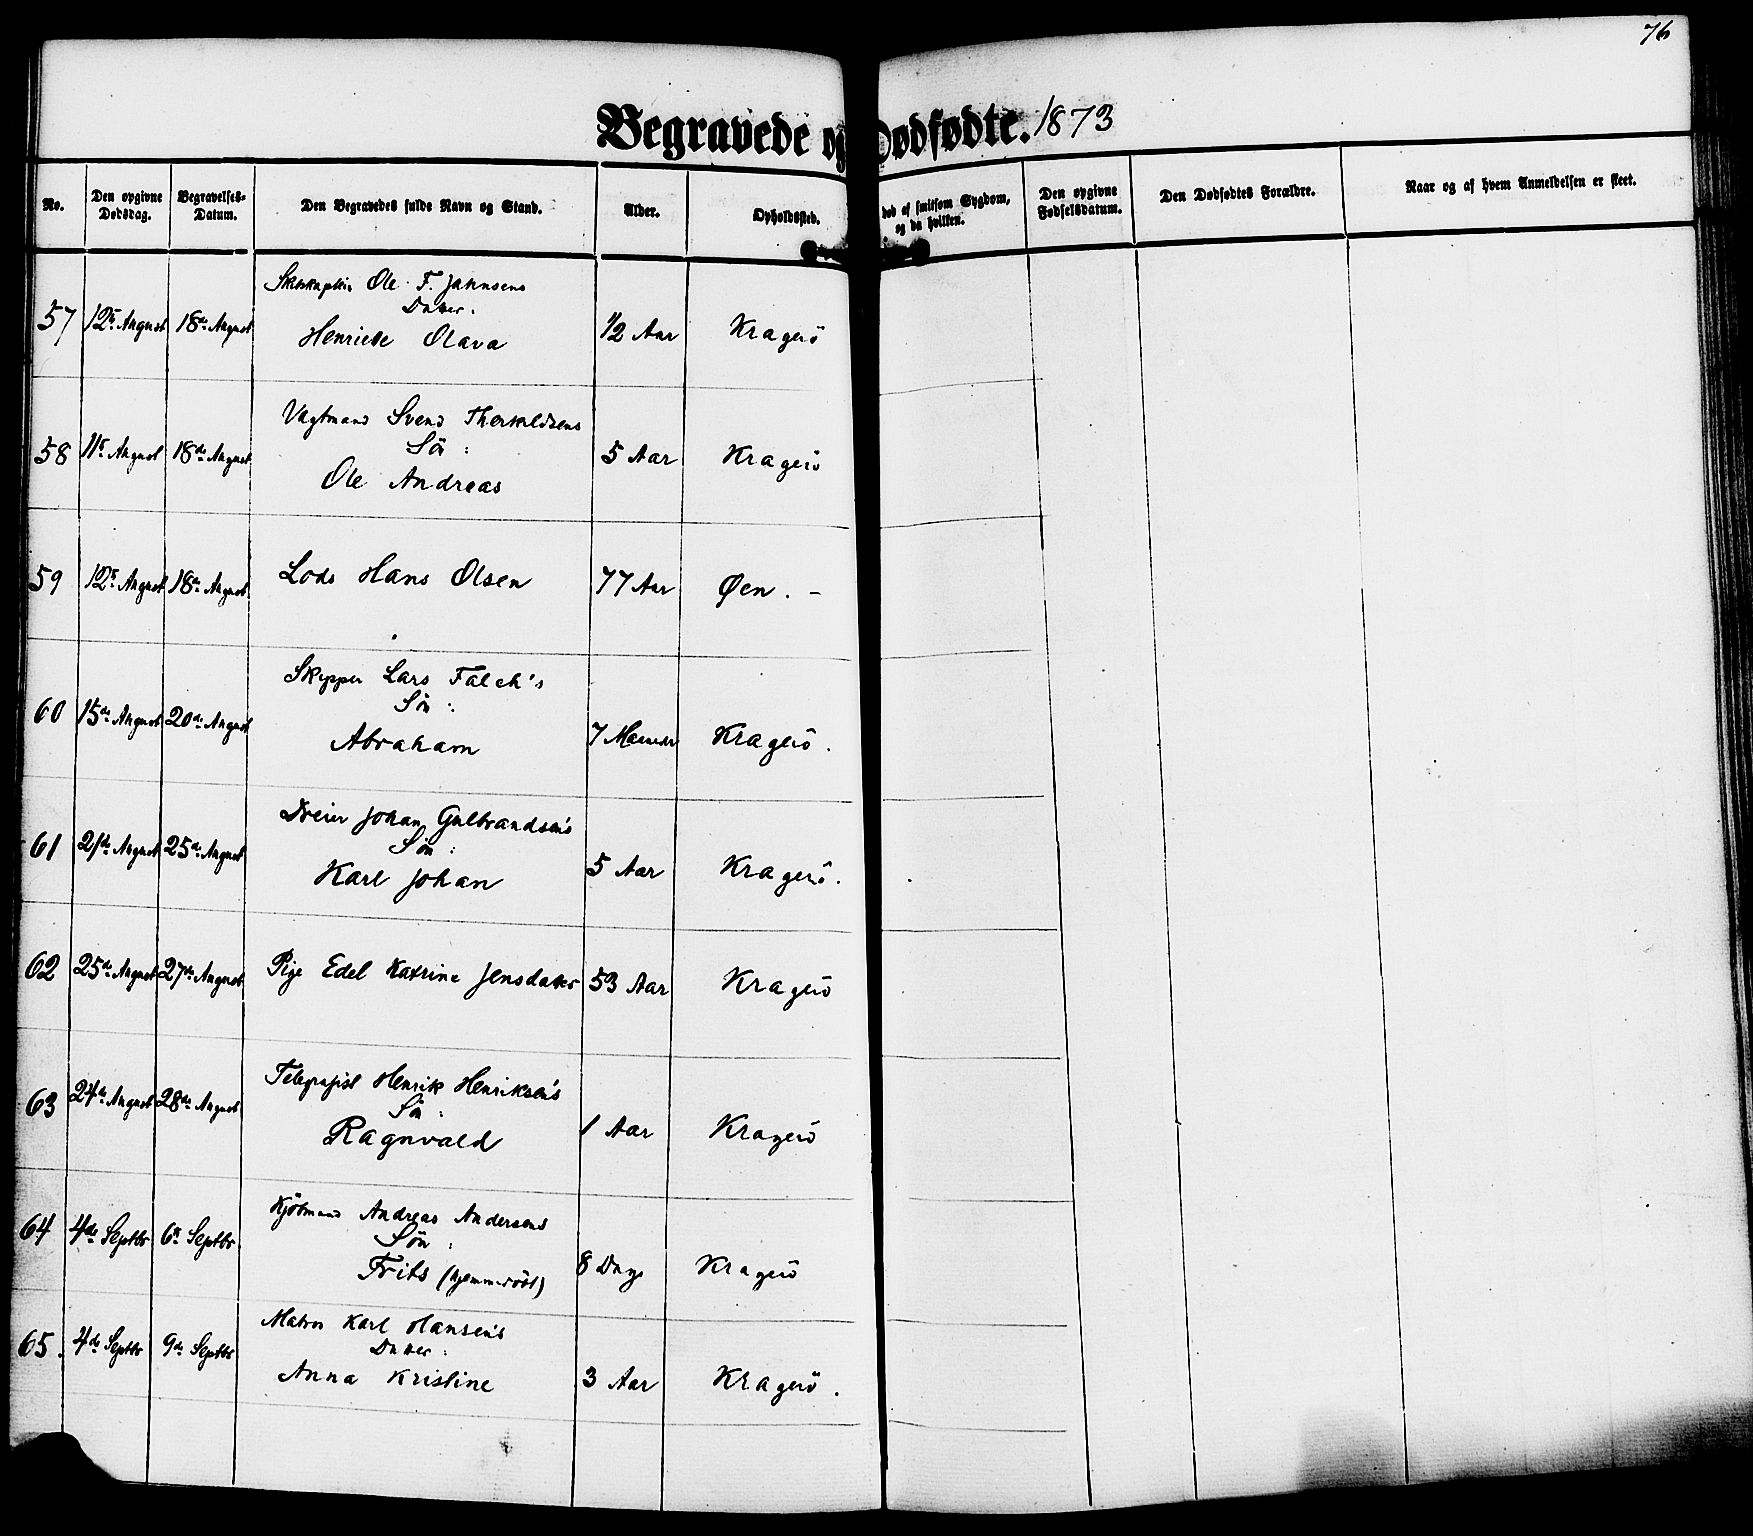 76
Begravede og Dødfødte. 1873
No. Den opgivne Dødsdag. Begravelses-Datum. Den Begravedes fulde Navn og Stand. Alder. Opholdssted. død af smitsom Sygdom, og da hvilken. Den opgivne Fødselsdatum. Den Dødfødtes Forældre. Naar og af hvem Anmeldelsen er skeet.
Ole F. Jahnsens
Datter:
57 12te August 18de August Henriette Olava 1/2 Aar Kragerö
Vægtmand Svend Therkeldsens
Sön:
58 11te August 18de August Ole Andreas 5 Aar Kragerö
59 12te August 18de August Lods Hans Olsen 77 Aar Øen. –
Skipper Lars Falch's
Sön:
60 15de August 20de August Abraham 7 Maaneder Kragerö.
Dreier Johan Gulbrandsen's
Sön:
61 21de August 25de August Karl Johan 5 Aar Kragerö.
62 25de August 27de August Pige Edel Katrine Jensdatter 53 Aar Kragerö
Telegrafist Henrik Henriksen's
Sön:
63 24de August 28de August Ragnvald 1 Aar Kragerö
Kjöbmand Andreas Andersens
Sön:
64 4de Septbr 6te Septbr. Frits (hjemmedöbt) 8 Dage Kragerö
Matros Karl Hansen's
Datter:
65. 4de Septbr 9de Septbr Anna Kristine 3 Aar Kragerö.